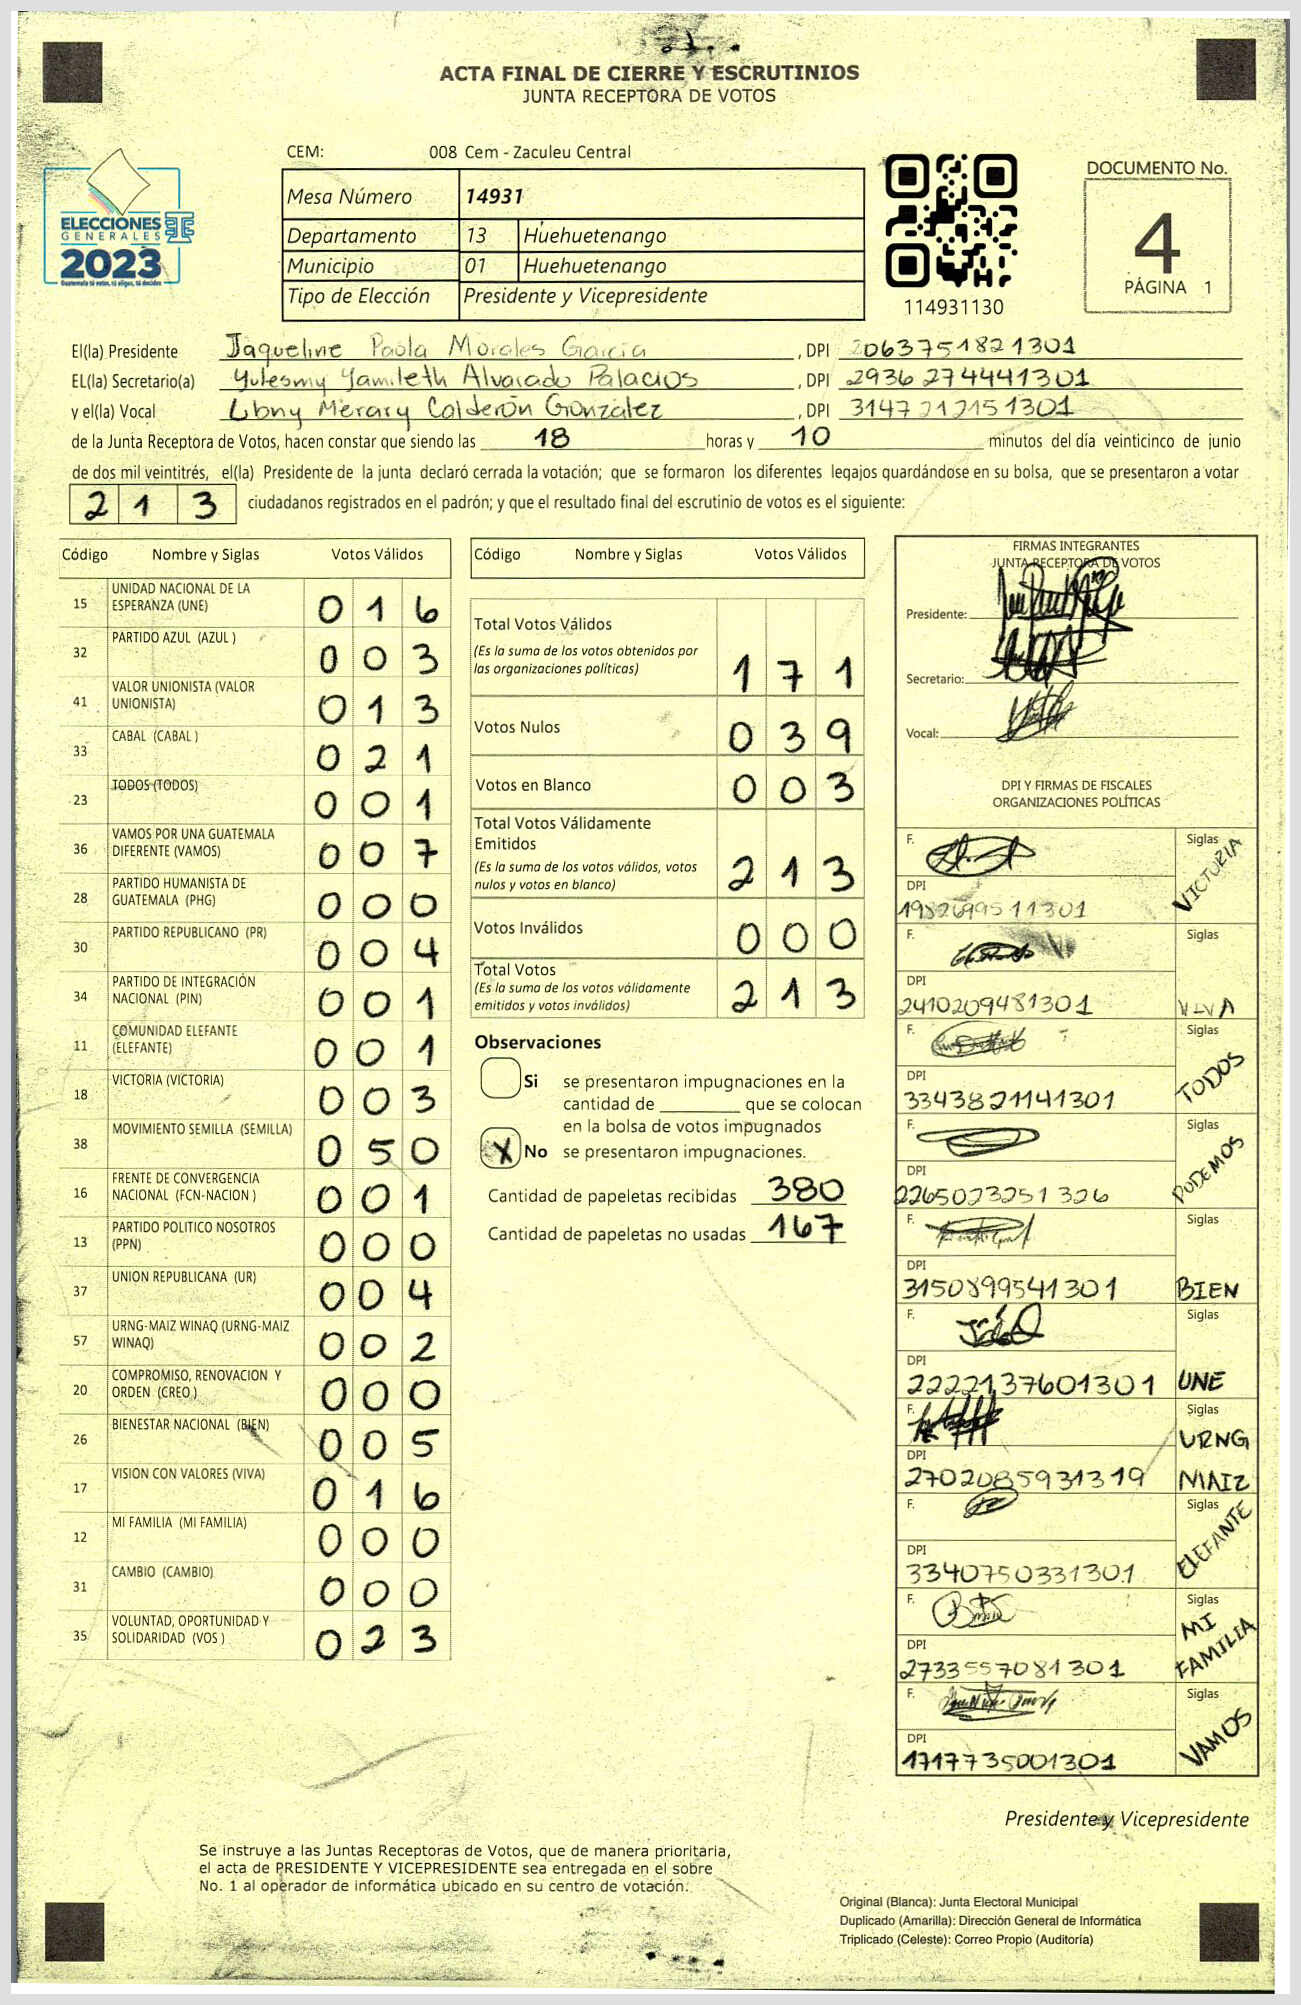 ACTA FINAL DE CIERRE Y ESCRUTINIOS
JUNTA RECEPTORA DE VOTOS
CEM: 008 Cem - Zaculeu Central
ELECCIONES
GENERALES
2023
Guatemala tú votas, tú eliges, tú decides
Mesa Número 14931
Departamento 13 Huehuetenango
Municipio 01 Huehuetenango
Tipo de Elección Presidente y Vicepresidente
114931130
DOCUMENTO No.
4
PÁGINA 1
El(la) Presidente Jaqueline Paola Morales García, DPI 2063751821301
EL(la) Secretario(a) Yulesmy Yamileth Alvarado Palacios, DPI 2936274441301
y el(la) Vocal Libny Merary Calderón González, DPI 3147212151301
de la Junta Receptora de Votos, hacen constar que siendo las 18 horas y 10 minutos del día veinticinco de junio
de dos mil veintitrés, el(la) Presidente de la junta declaró cerrada la votación; que se formaron los diferentes legajos guardándose en su bolsa, que se presentaron a votar
213 ciudadanos registrados en el padrón; y que el resultado final del escrutinio de votos es el siguiente:
Código Nombre y Siglas Votos Válidos
15 UNIDAD NACIONAL DE LA ESPERANZA (UNE) 016
32 PARTIDO AZUL (AZUL ) 003
41 VALOR UNIONISTA (VALOR UNIONISTA) 013
33 CABAL (CABAL ) 021
23 TODOS (TODOS) 001
36 VAMOS POR UNA GUATEMALA DIFERENTE (VAMOS) 007
28 PARTIDO HUMANISTA DE GUATEMALA (PHG) 000
30 PARTIDO REPUBLICANO (PR) 004
34 PARTIDO DE INTEGRACIÓN NACIONAL (PIN) 001
11 COMUNIDAD ELEFANTE (ELEFANTE) 001
18 VICTORIA (VICTORIA) 003
38 MOVIMIENTO SEMILLA (SEMILLA) 050
16 FRENTE DE CONVERGENCIA NACIONAL (FCN-NACION ) 001
13 PARTIDO POLITICO NOSOTROS (PPN) 000
37 UNION REPUBLICANA (UR) 004
57 URNG-MAIZ WINAQ (URNG-MAIZ WINAQ) 002
20 COMPROMISO, RENOVACION Y ORDEN (CREO ) 000
26 BIENESTAR NACIONAL (BIEN) 005
17 VISION CON VALORES (VIVA) 016
12 MI FAMILIA (MI FAMILIA) 000
31 CAMBIO (CAMBIO) 000
35 VOLUNTAD, OPORTUNIDAD Y SOLIDARIDAD (VOS ) 023
Código Nombre y Siglas Votos Válidos
Total Votos Válidos
(Es la suma de los votos obtenidos por
las organizaciones políticas) 171
Votos Nulos 039
Votos en Blanco 003
Total Votos Válidamente
Emitidos
(Es la suma de los votos válidos, votos
nulos y votos en blanco) 213
Votos Inválidos 000
Total Votos
(Es la suma de los votos válidamente
emitidos y votos inválidos) 213
Observaciones
Si se presentaron impugnaciones en la
cantidad de ________ que se colocan
en la bolsa de votos impugnados
X No se presentaron impugnaciones.
Cantidad de papeletas recibidas 380
Cantidad de papeletas no usadas 167
FIRMAS INTEGRANTES
JUNTA RECEPTORA DE VOTOS
Presidente:
Secretario:
Vocal:
DPI Y FIRMAS DE FISCALES
ORGANIZACIONES POLÍTICAS
F. Siglas VICTORIA
DPI 1982699511301
F. Siglas VIVA
DPI 2410209481301
F. Siglas TODOS
DPI 3343821141301
F. Siglas PODEMOS
DPI 2265023251326
F. Siglas BIEN
DPI 3150899541301
F. Siglas UNE
DPI 2222137601301
F. Siglas URNG MAIZ
DPI 2702085931319
F. Siglas ELEFANTE
DPI 3340750331301
F. Siglas MI FAMILIA
DPI 2733557081301
F. Siglas VAMOS
DPI 1717735001301
Presidente y Vicepresidente
Se instruye a las Juntas Receptoras de Votos, que de manera prioritaria,
el acta de PRESIDENTE Y VICEPRESIDENTE sea entregada en el sobre
No. 1 al operador de informática ubicado en su centro de votación.
Original (Blanca): Junta Electoral Municipal
Duplicado (Amarilla): Dirección General de Informática
Triplicado (Celeste): Correo Propio (Auditoría)